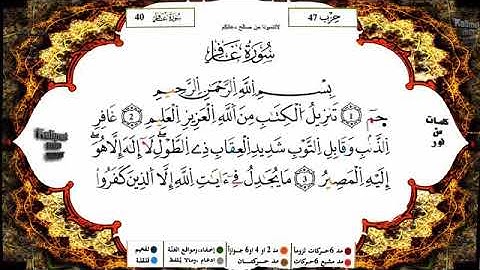 حزب 47
لاتنسونا من صالح دعائكم
سورة غافر 40
سُورَةُ غَافِرٍ
بِسْمِ اللَّهِ الرَّحْمَٰنِ الرَّحِيمِ
حمٓ ١ تَنزِيلُ الْكِتَٰبِ مِنَ اللَّهِ الْعَزِيزِ الْعَلِيمِ ٢ غَافِرِ
الذَّنۢبِ وَقَابِلِ التَّوْبِ شَدِيدِ الْعِقَابِ ذِي الطَّوْلِ ۖ لَآ إِلَٰهَ إِلَّا هُوَ ۖ
إِلَيْهِ الْمَصِيرُ ٣ مَا يُجَٰدِلُ فِىٓ ءَايَٰتِ اللَّهِ إِلَّا الَّذِينَ كَفَرُوا
كلمات
من
نور
مد 6 حركات لزوماً مد 2 او 4 او 6 جوازاً إخفاء، ومواقع الغنّة تفخيم
مد مشبع 6 حركات مد حركتان ادغام، ومالا يلفظ قلقلة